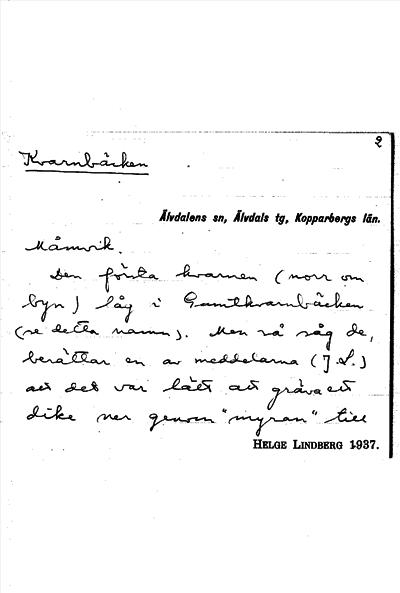 2
Kvarnbäcken
Älvdalens sn, Älvdals tg, Kopparbergs län.
Månvik.
Den första kvarnen (norr om
byn) låg i Gamtkvarnbäcken
(se detta namn). Men så såg de,
berättar en av meddelarna (J.L.)
att det var lätt att gräva ett
dike ner genom "myran" till
HELGE LINDBERG 1937.